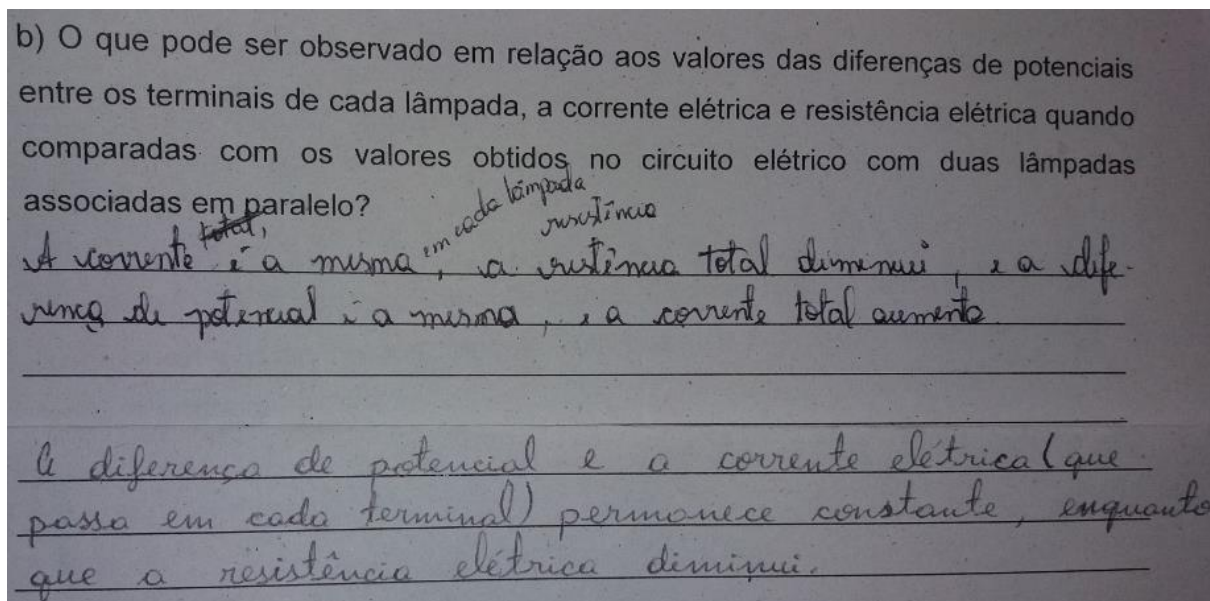 b) O que pode ser observado em relação aos valores das diferenças de potenciais
entre os terminais de cada lâmpada, a corrente elétrica e resistência elétrica quando
comparadas com os valores obtidos no circuito elétrico com duas lâmpadas
associadas em paralelo?
em cada lâmpada
resistência
total,
A corrente é a mesma, a resistência total diminui, e a dife-
rença de potencial é a mesma, e a corrente total aumenta
A diferença de potencial e a corrente elétrica (que
passa em cada terminal) permanece constante, enquanto
que a resistência elétrica diminui.